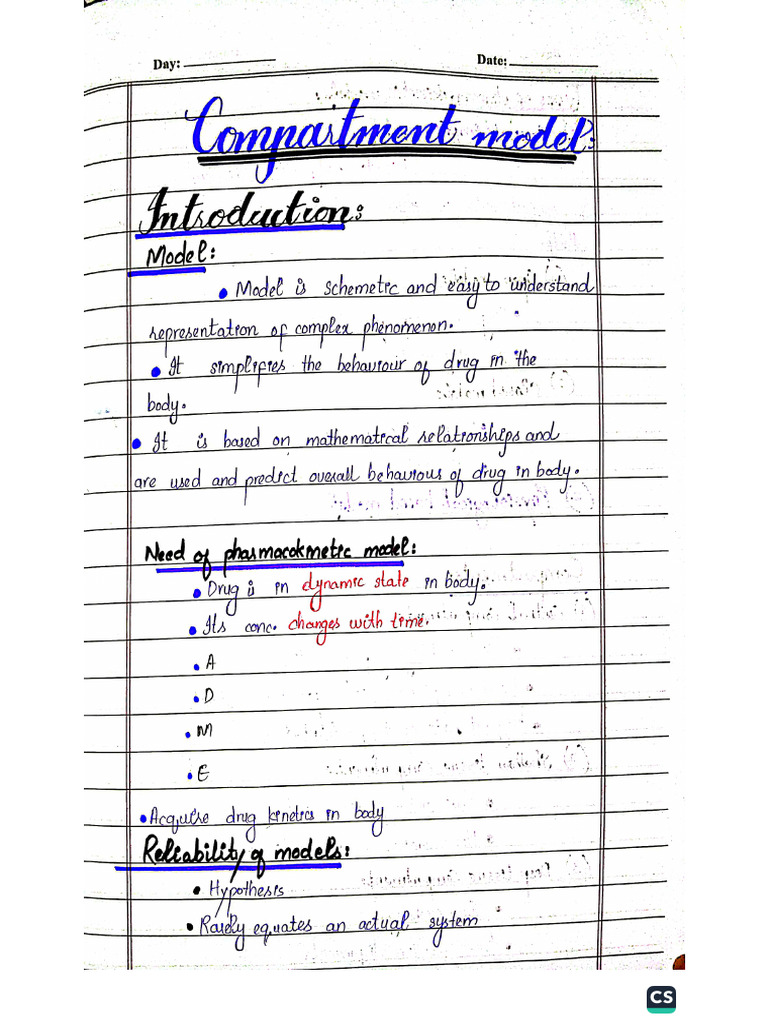 Day: Date:
Compartment model:
Introduction:
Model:
• Model is schemetic and easy to understand
representation of complex phenomenon.
• It simplifies the behaviour of drug in the
body.
• It is based on mathematical relationships and
are used and predict overall behaviour of drug in body.
Need of pharmacokinetic model:
• Drug is in dynamic state in body.
• Its conc. changes with time.
• A
• D
• M
• E
• Acquire drug kinetics in body
Reliability of models:
• Hypothesis
• Rarely equates an actual system
CS